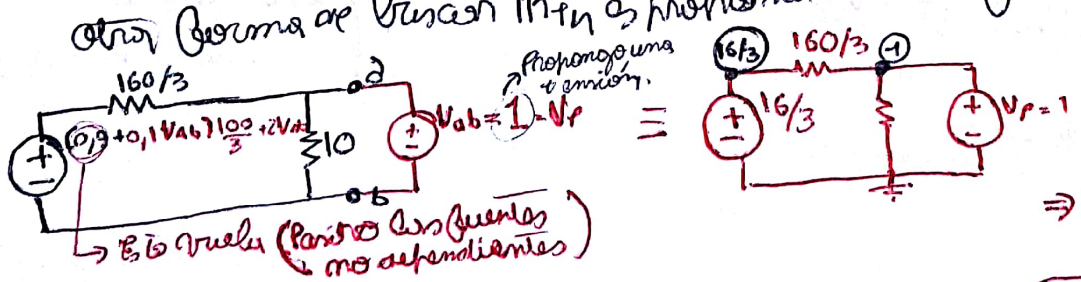 otra forma de buscar
160/3
(0,9+0,1Vab)100/3+2Vab
10
a
b
Propongo una
tensión.
Vab=1=Vp
≡
16/3
160/3
1
16/3
Vp=1
⇒
→ Esto vuela (Pasivo las fuentes
no dependientes)